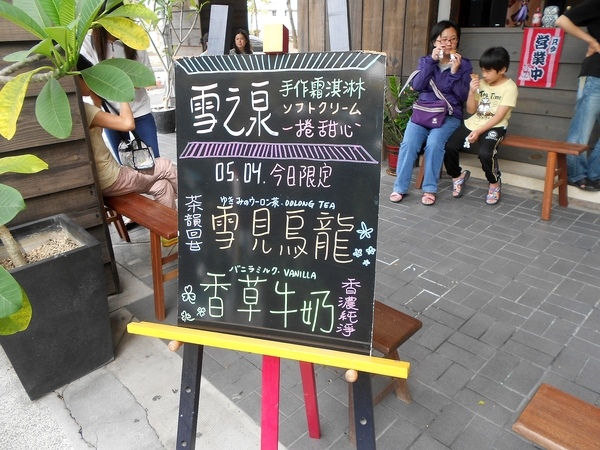 雪之泉
手作霜淇淋
ソフトクリーム
一捲甜心
05.04.今日限定
茶韻回甘
ゆきみのウーロン茶·OOLONG TEA
雪見烏龍
バニラミルク·VANILLA
香草牛奶
香濃純淨
営業中